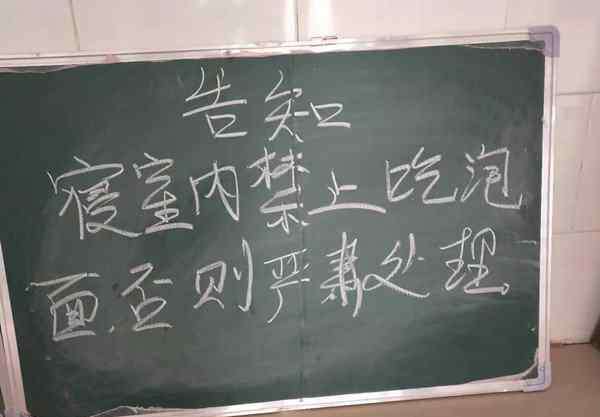 告知
寝室内禁止吃泡
面.否则严肃处理